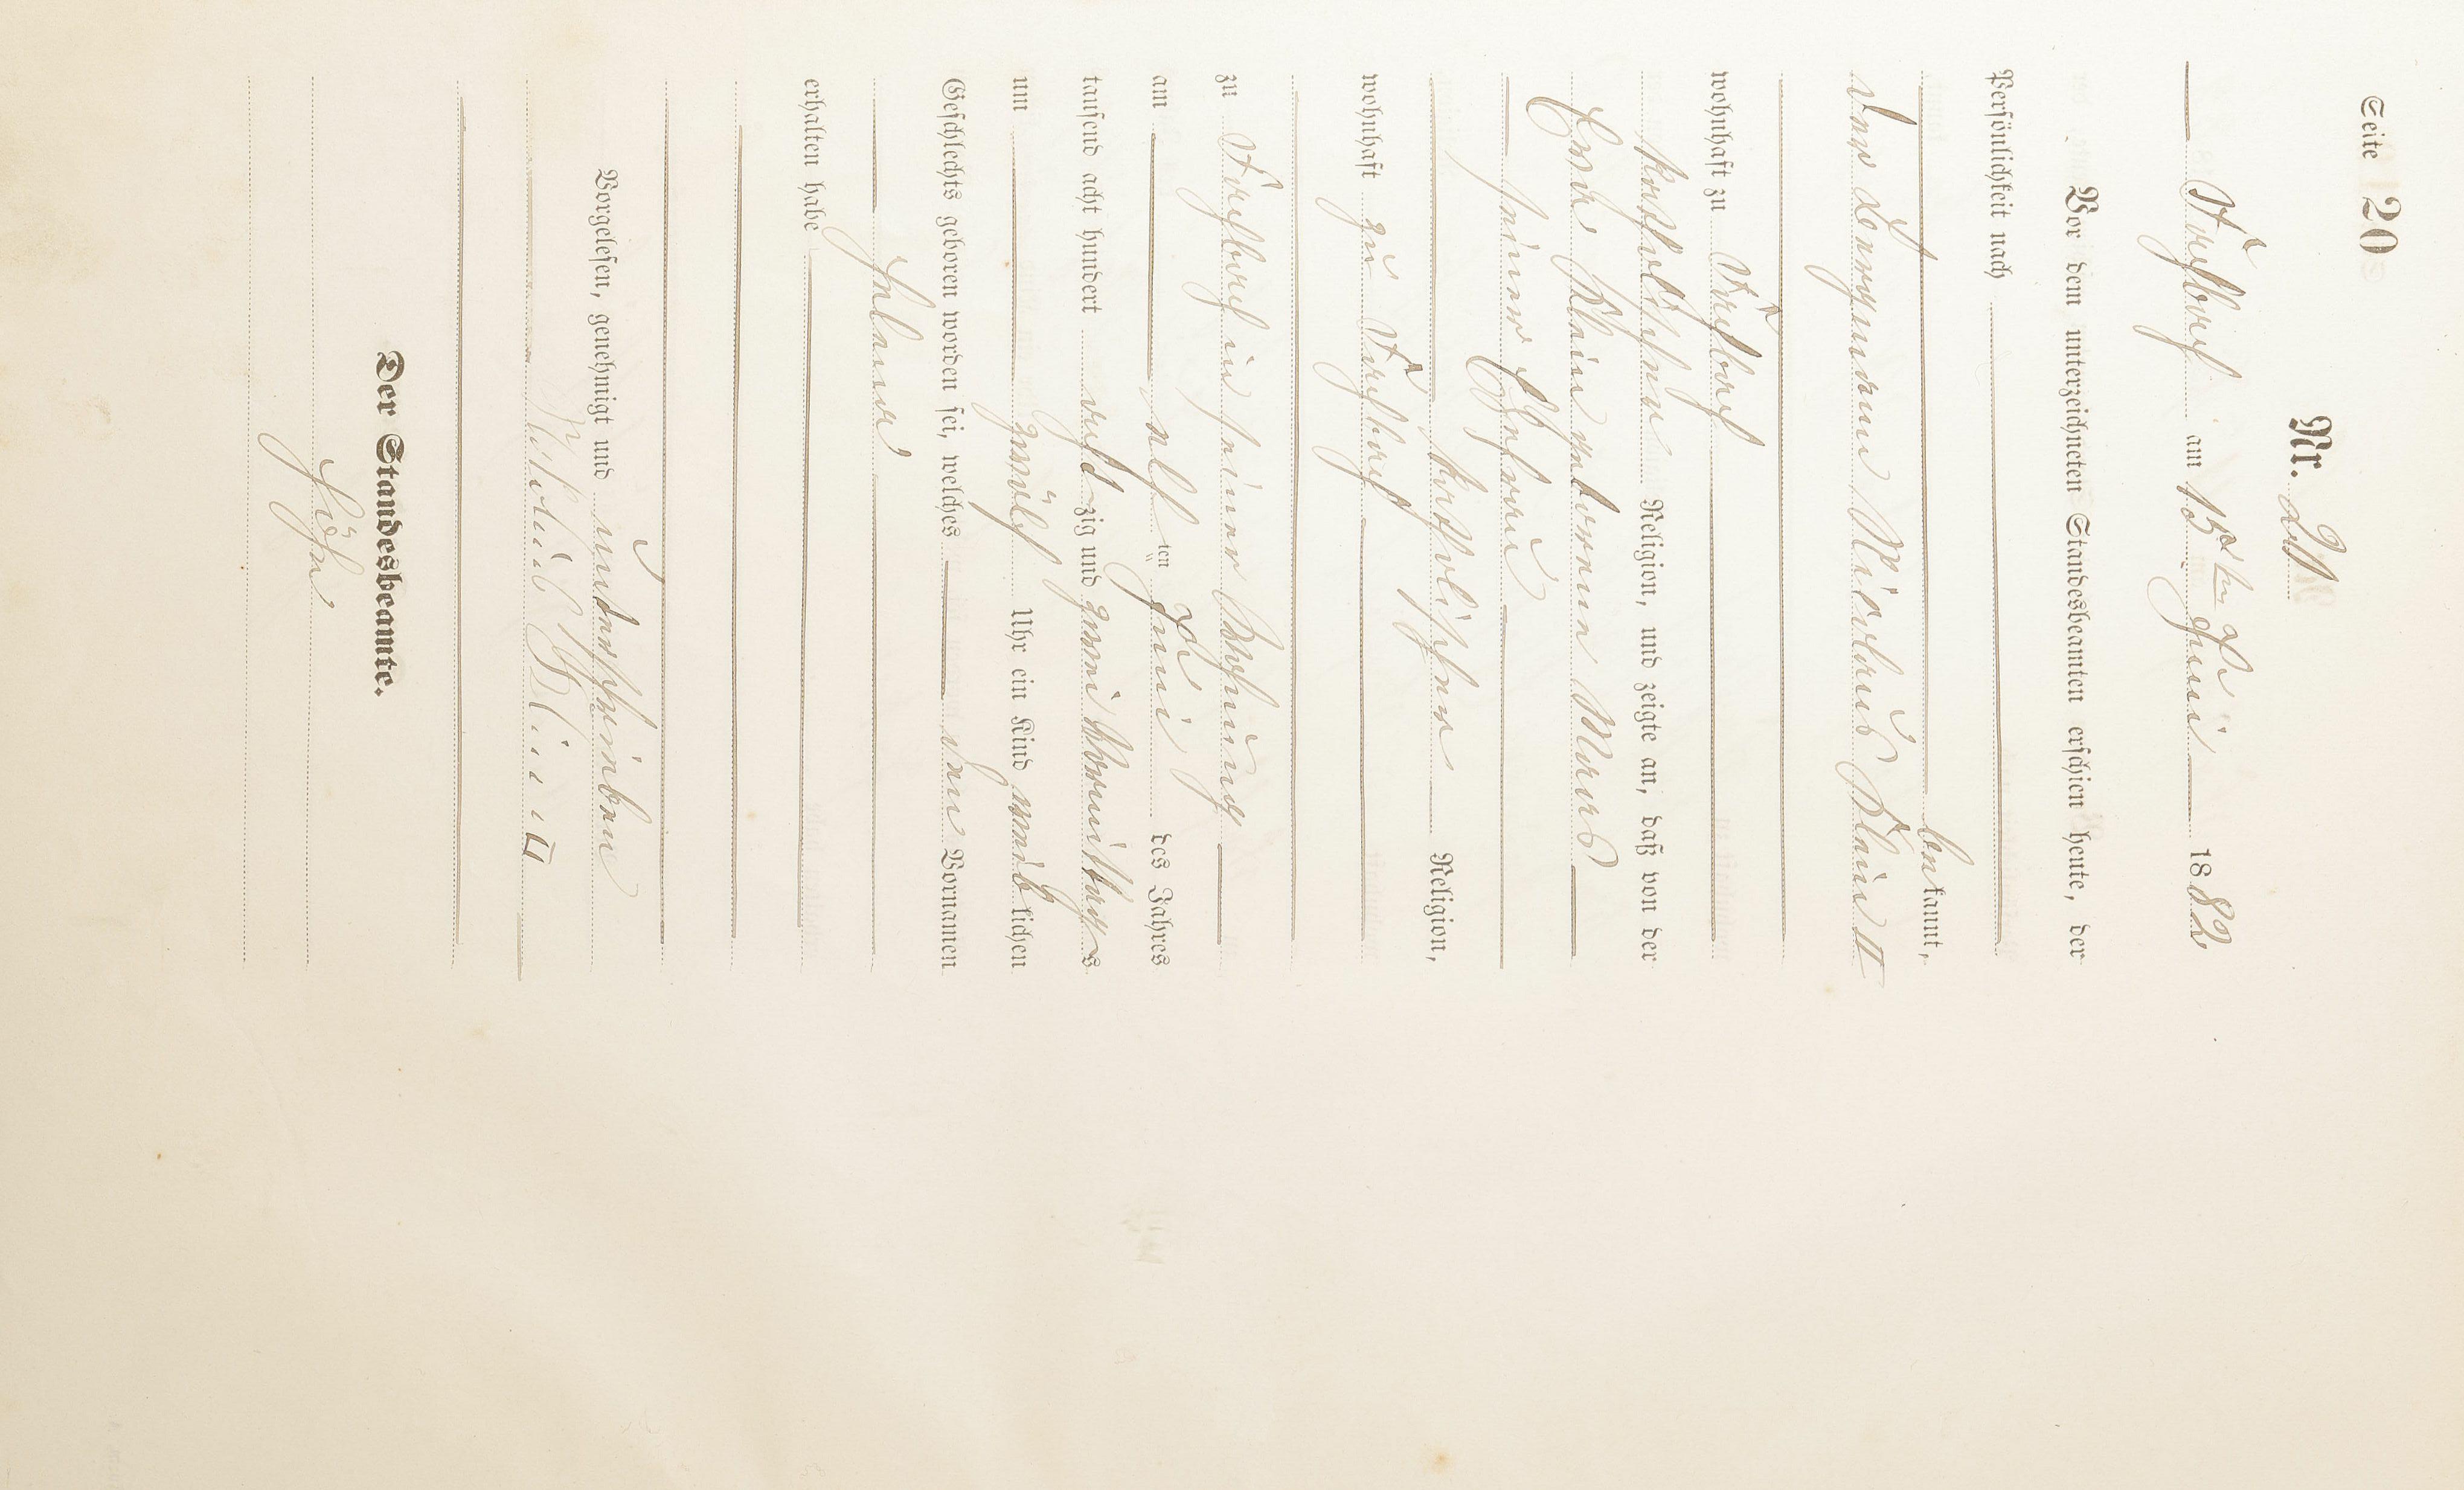 Seite 20
Nr. 20
am 15ten Juni 1882
Vor dem unterzeichneten Standesbeamten erschien heute, der
Persönlichkeit nach
bekannt,
der Bergmann Nicolaus Klein II
wohnhaft zu
katholischen Religion, und zeigte an, daß von der
Klein geborene Maas
seiner Ehefrau
katholischer Religion,
wohnhaft zu
zu in seiner Wohnung
am elften Juni des Jahres
tausend acht hundert achtzig und zwei Vormittags
um zwölf Uhr ein Kind weiblichen
Geschlechts geboren worden sei, welches den Vornamen
Helena
erhalten habe
Vorgelesen, genehmigt und unterschrieben
Nikolaus Klein II
Der Standesbeamte.